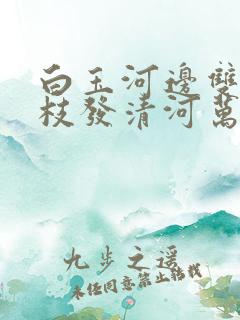 白玉河邊雙
枝發清河萬
九步之遥
未經同意禁止轉載